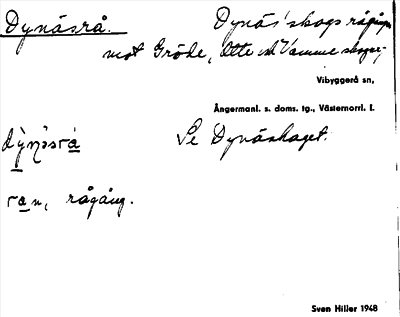 Dynäsrå. Dynäs' skogs rågång
mot Gröde, Ytte och Vamme skogar,
Vibyggerå sn,
Ångermanl. s. doms. tg., Västernorrl. l.
Se Dynäskaget.
ran, rågång.
Sven Hiller 1948